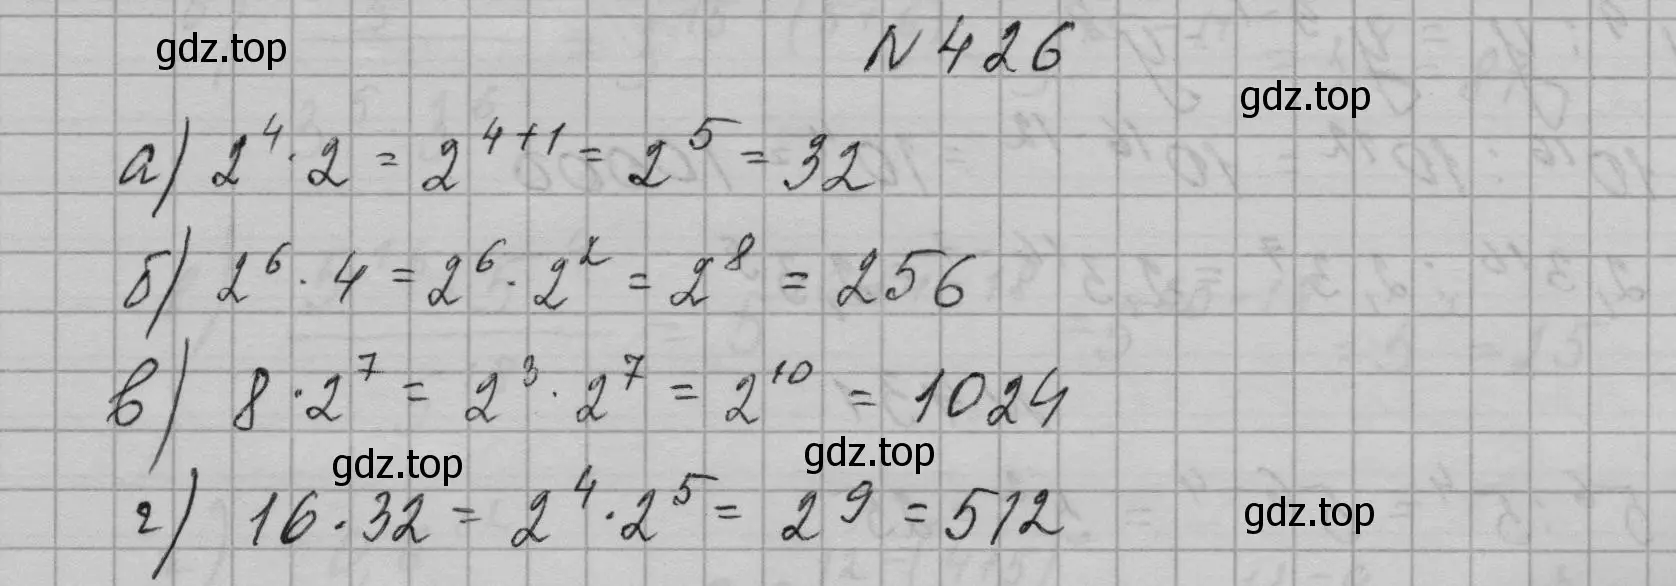 gdz.top
N 426
gdz.top
а) 2⁴ · 2 = 2⁴⁺¹ = 2⁵ = 32
б) 2⁶ · 4 = 2⁶ · 2² = 2⁸ = 256
в) 8 · 2⁷ = 2³ · 2⁷ = 2¹⁰ = 1024
gdz.top
gdz.top
г) 16 · 32 = 2⁴ · 2⁵ = 2⁹ = 512
gdz.top